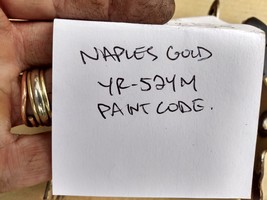 NAPLES GOLD
YR-524M
PAINT CODE.